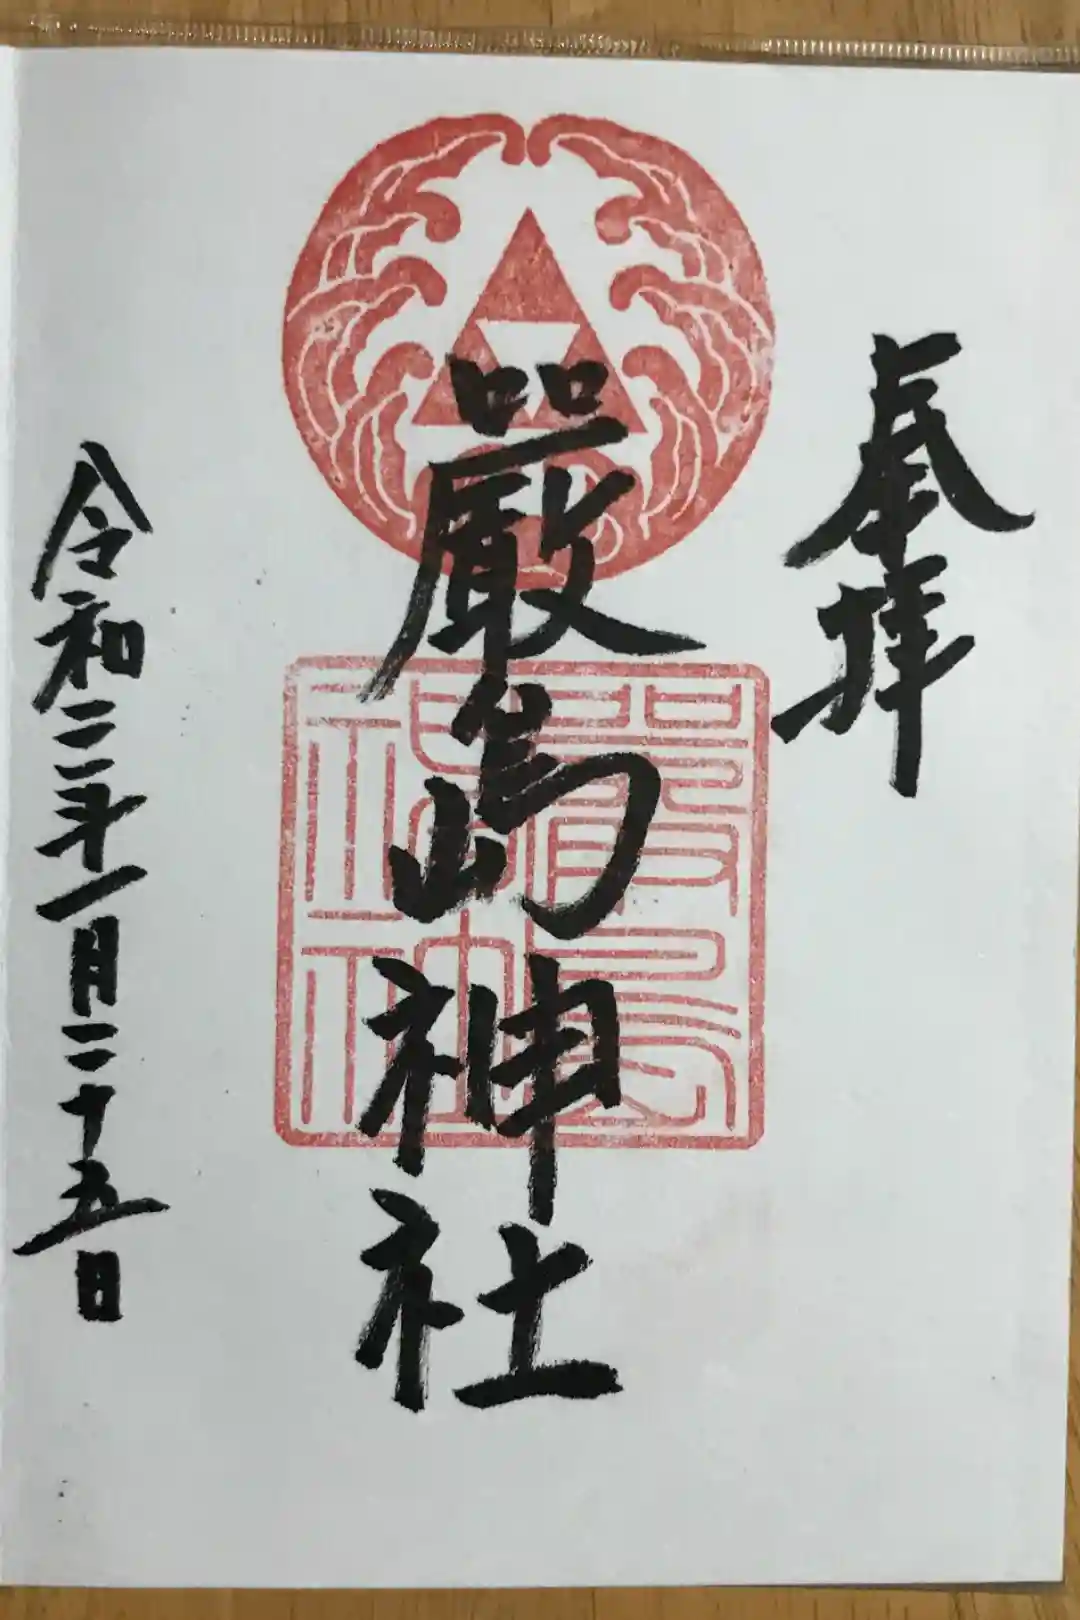 奉拝
嚴島神社
嚴島神社
令和二年一月二十五日